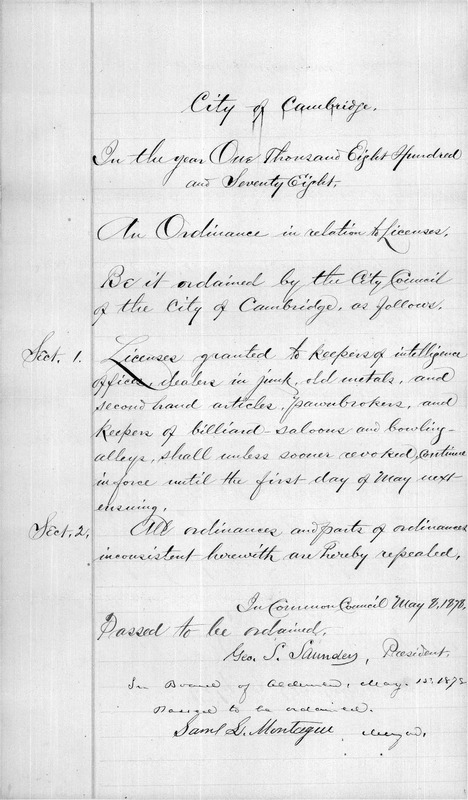 City of Cambridge.
In the year One Thousand Eight Hundred
and Seventy Eight.
An Ordinance in relation to Licenses.
Be it ordained by the City Council
of the City of Cambridge, as follows.
Sect. 1. Licenses granted to keepers of intelligence
offices, dealers in junk, old metals, and
second hand articles, pawnbrokers, and
keepers of billiard-saloons and bowling-
alleys, shall unless sooner revoked, continue
in force until the first day of May next
ensuing.
Sect. 2. All ordinances and parts of ordinances
inconsistent herewith are hereby repealed.
In Common Council May 8, 1878.
Passed to be ordained.
Geo. S. Saunders, President.
In Board of Aldermen, May 15, 1878
Passed to be ordained.
Saml L. Montague Mayor.